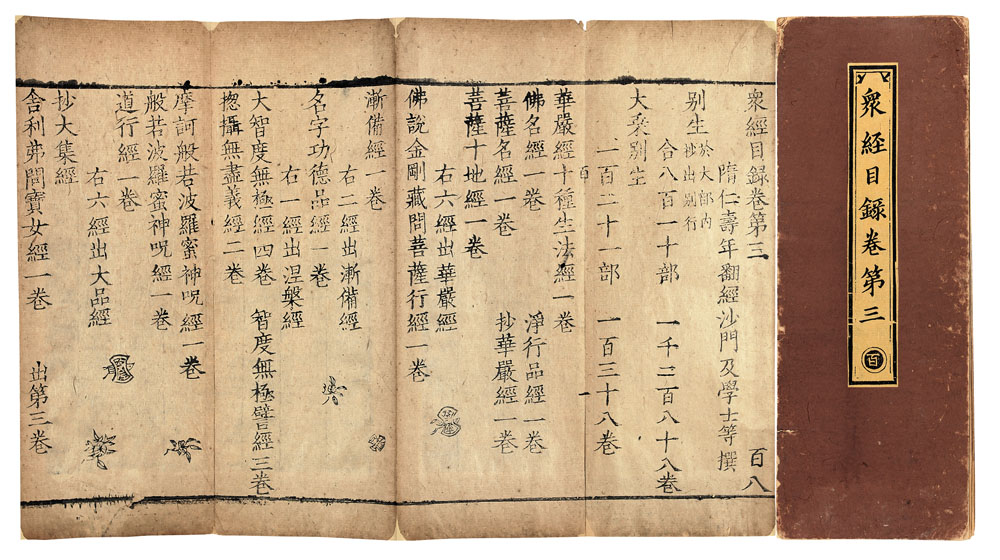 衆経目録卷第三
百
衆經目録卷第三 百八
隋仁壽年翻經沙門及學士等撰
别生 於大部内
抄出别行
合八百一十部 一千二百八十八卷
大乗别生
一百二十一部 一百三十八卷
百 一
華嚴經十種生法經一卷
佛名經一卷 淨行品經一卷
菩薩名經一卷 抄華嚴經一卷
菩薩十地經一卷
右六經出華嚴經
佛說金剛藏問菩薩行經一卷
漸備經一卷
右二經出漸備經
名字功德品經一卷
右一經出涅槃經
大智度無極經四卷 智度無極譬經三卷
揔攝無盡義經二卷
摩訶般若波羅蜜神呪經一卷
般若波羅蜜神呪經一卷
道行經一卷
右六經出大品經
抄大集經
舍利弗問寶女經一卷 出第三卷